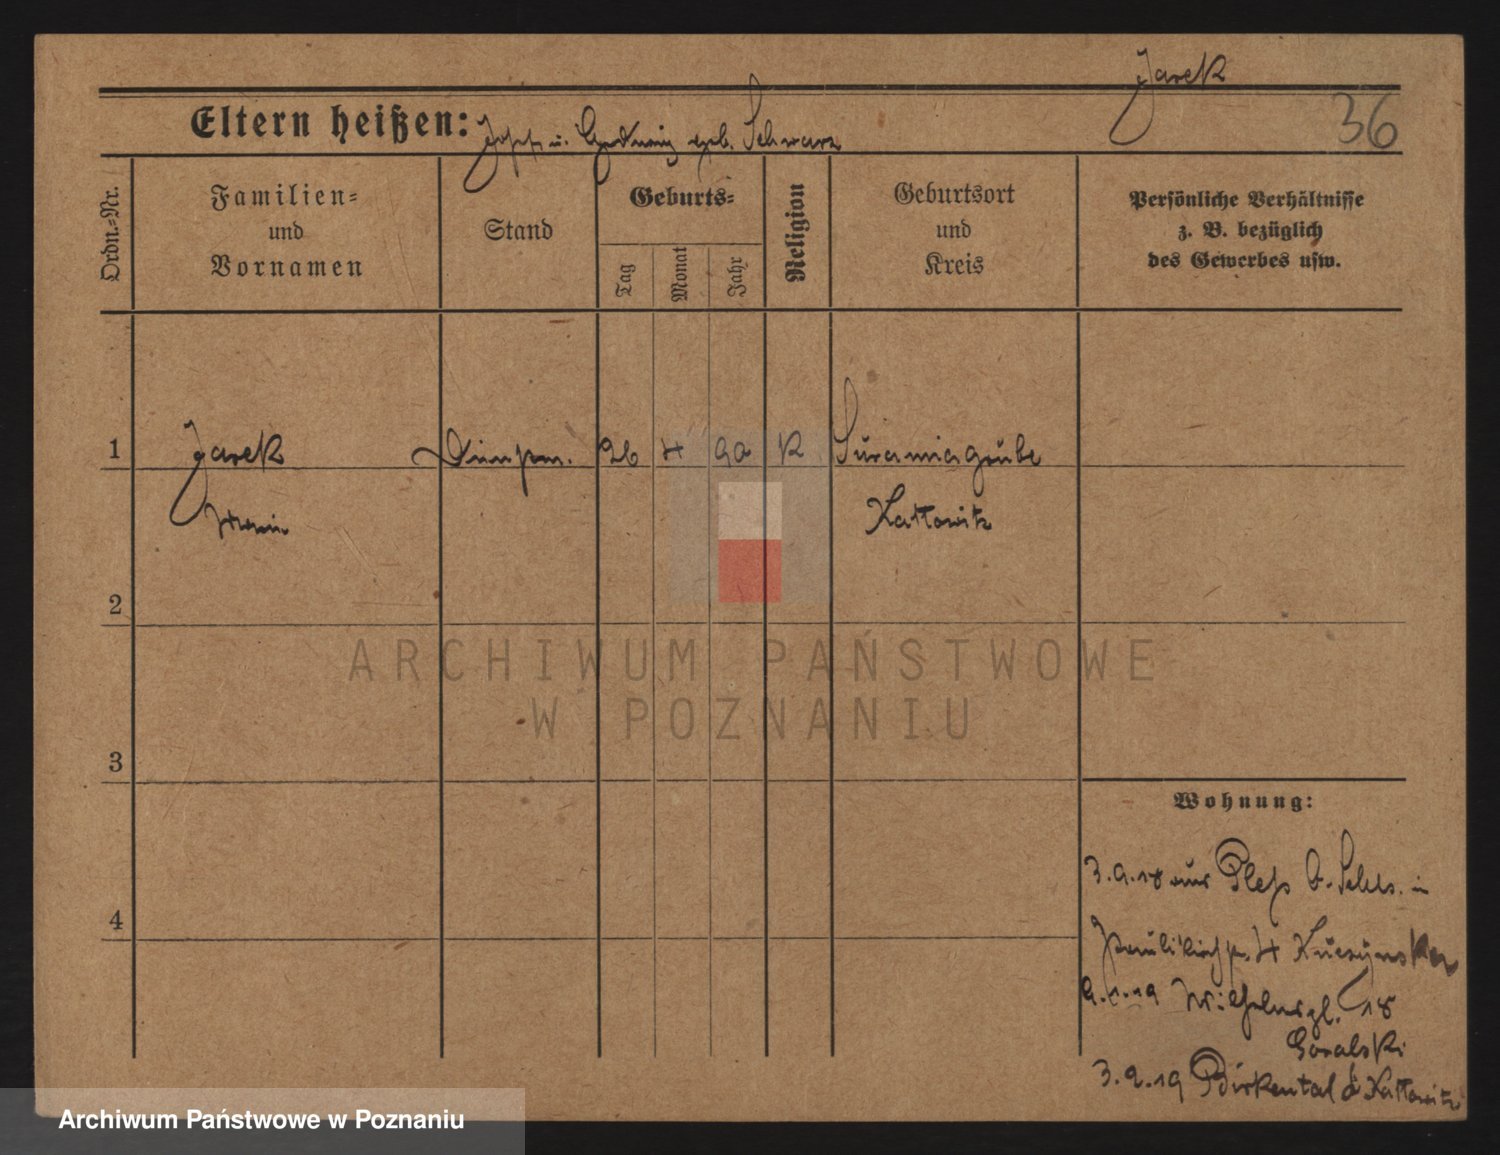 Jarek
36
Eltern heißen: Josef u. Hedwig geb. Schwarz
Ordn.-Nr.
Familien=
und
Vornamen
Stand
Geburts=
Tag
Monat
Jahr
Religion
Geburtsort
und
Kreis
Persönliche Verhältnisse
z. B. bezüglich
des Gewerbes usw.
1 Jarek 26 4 90 K
Kattowitz
2
ARCHIWUM PAŃSTWOWE
W POZNANIU
3
Wohnung:
3.9.18 aus Pleß O. Schls. in
4
Paulikirchstr. 4
9.1.19 Wilhelmspl. 18
Goralski
3.2.19 Birkental b Kattowitz
Archiwum Państwowe w Poznaniu